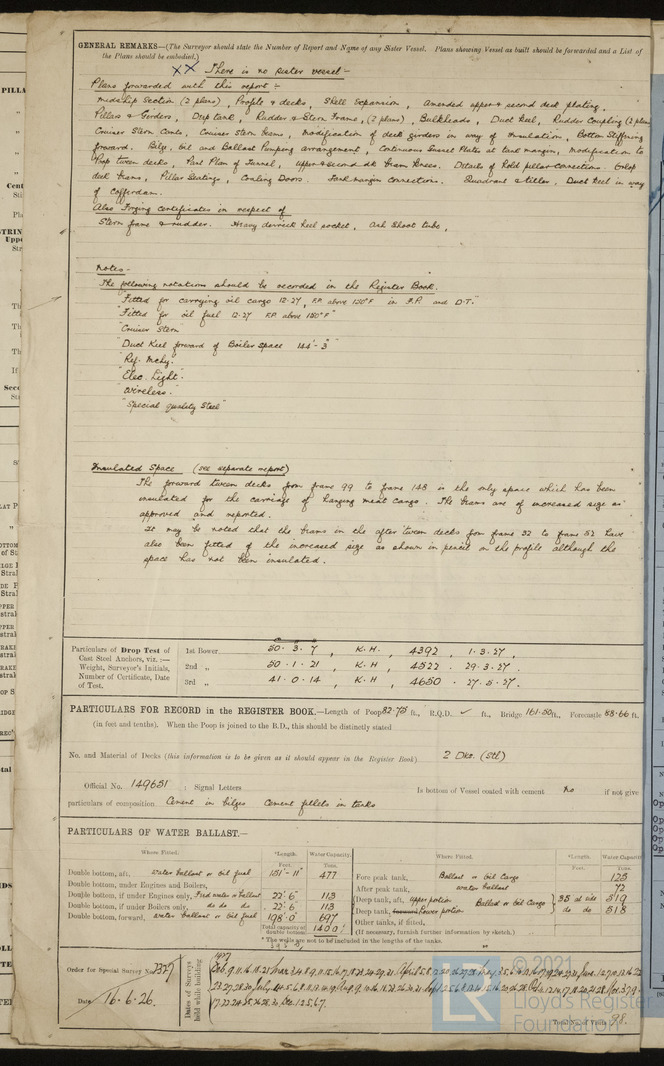 GENERAL REMARKS—(The Surveyor should state the Number of Report and Name of any Sister Vessel. Plans showing Vessel as built should be forwarded and a List of
the Plans should be embodied.)
XX There is no sister vessel -
Plans forwarded with this report :-
Midship Section (2 plans), Profile & decks, Shell Expansion, Amended upper & second deck plating,
Pillars & Girders, Deep tank, Rudder & Stern Frame, (2 plans), Bulkheads, Duct Keel, Rudder Coupling (2 plans
Cruiser Stern Cants, Cruiser Stern Beams, Modification of deck girders in way of Insulation, Bottom Stiffening
forward. Bilge, Oil and Ballast Pumping arrangement, Continuous Gusset Plates at tank margin, modification to
Poop tween decks, Part Plan of Tunnel, upper & second dk beam knees. Details of hold pillar connections.
deck beams, Pillar Seatings, Coaling Doors. Tank margin connections. Quadrant & tiller, Duct Keel in way
of Cofferdam.
Also Forging certificates in respect of
Stern frame & rudder. Heavy derrick heel socket, Ash Shoot tube,
Notes -
The following notations should be recorded in the Register Book.
"Fitted for carrying oil cargo 12.27, F.P. above 150°F in F.P. and D.T."
"Fitted for oil fuel 12.27 F.P. above 150°F"
"Cruiser Stern"
"Duct Keel forward of Boiler space 144'-3"
"Ref. Mchy."
"Elec. Light."
"Wireless."
"Special quality Steel"
Insulated Space (see separate report)
The forward tween decks from frame 99 to frame 148 is the only space which has been
insulated for the carriage of hanging meat cargo. The beams are of increased size as
approved and reported.
It may be noted that the beams in the after tween decks from frame 32 to frame 52 have
also been fitted of the increased size as shown in pencil on the profile although the
space has not been insulated.
Particulars of Drop Test of Cast Steel Anchors, viz. :— Weight, Surveyor's Initials, Number of Certificate, Date of Test.
1st Bower 50 . 3 . 7 , K.H. , 4392 , 1.3.27 ,
2nd „ 50 . 1 . 21 , K.H , 4522 . 29.3.27 .
3rd „ 41 . 0 . 14 , K.H , 4650 . 27.5.27.
PARTICULARS FOR RECORD in the REGISTER BOOK.—Length of Poop 82.75 ft., R.Q.D. ✓ ft., Bridge 161.50 ft., Forecastle 88.66 ft.
(in feet and tenths). When the Poop is joined to the B.D., this should be distinctly stated
No. and Material of Decks (this information is to be given as it should appear in the Register Book) 2 Dks. (Stl)
Official No. 149651 ; Signal Letters Is bottom of Vessel coated with cement No if not give
particulars of composition Cement in bilges Cement fillets in tanks
PARTICULARS OF WATER BALLAST.—
Where Fitted. *Length. Feet. Water Capacity. Tons. Where Fitted. *Length. Feet. Water Capacity Tons.
Double bottom, aft, water ballast or oil fuel 151'-11" 477 Fore peak tank, Ballast or Oil Cargo 125
Double bottom, under Engines and Boilers, After peak tank, water ballast 72
Double bottom, if under Engines only, Feed water or ballast 22'.6" 113 Deep tank, aft, upper portion Ballast or Oil Cargo 35 at side 519
Double bottom, if under Boilers only, do do do 22'.6" 113 Deep tank, lower portion do do 518
Double bottom, forward, water ballast or oil fuel 198'.0" 697 Other tanks, if fitted,
Total capacity of double bottom 1400 (If necessary, furnish further information by sketch.)
* The wells are not to be included in the lengths of the tanks.
Order for Special Survey No. 2327
Date 16.6.26.
Dates of Surveys held while building
1927
Total No. of Visits 98.
© 2021
LR
Lloyd's Register
Foundation